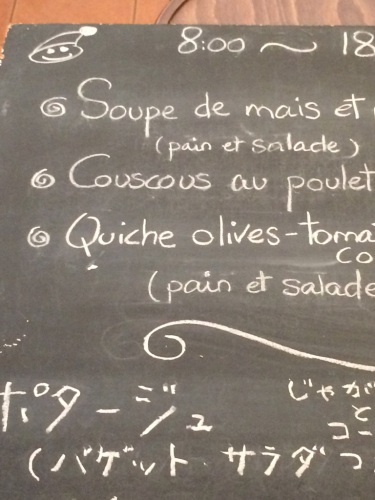 8:00 〜 18
Soupe de mais et
(pain et salade)
Couscous au poulet
Quiche olives-tomat
co
(pain et salade
ポタージュ じゃが
と
コー
(バゲット サラダ コ